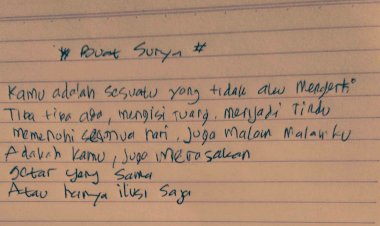 # Pouat Surya #
Kamu adalah sesuatu yang tidak aku Mengerti
Tiba tiba ada, mengisi ruang, menjadi rindu
memenuhi segenua hari, juga malam malamku
Adakah kamu, juga merasakan
getar yang sama
Atau hanya ilusi saja